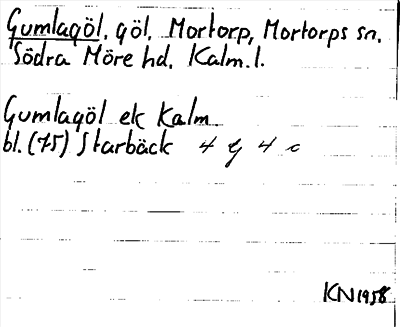 Gumlagöl, göl, Mortorp, Mortorps sn,
Södra Möre hd, Kalm. l.
Gumlagöl ek Kalm
bl. (75) Starbäck 4 G 4 c
KN 1958